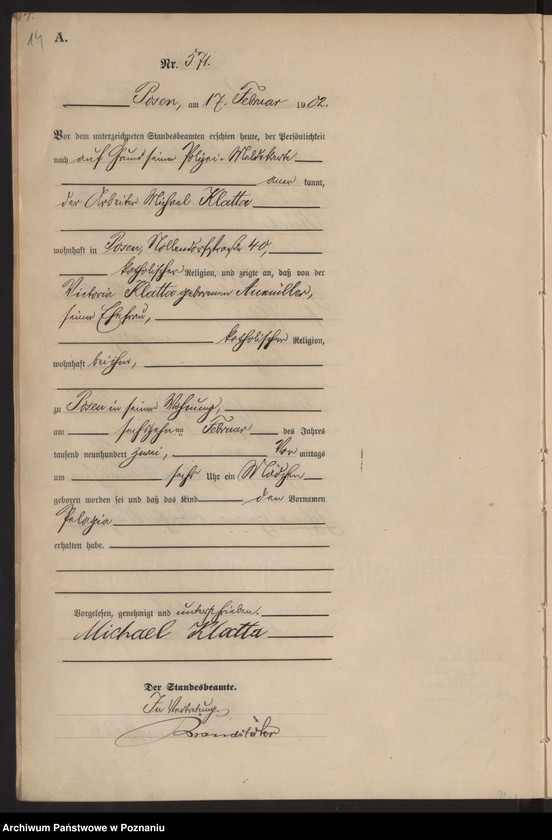 14
A.
Nr. 571.
Posen, am 17. Februar 1902.
Vor dem unterzeichneten Standesbeamten erschien heute, der Persönlichkeit
nach auf Grund seiner Polizei-Meldekarte
aner kannt,
der Arbeiter Michael Klatta
wohnhaft in Posen, Nollendorfstraße 40,
katholischer Religion, und zeigte an, daß von der
Victoria Klatta geborenen
seiner Ehefrau,
katholischer Religion,
wohnhaft bei ihm,
zu Posen in seiner Wohnung,
am sechszehnten Februar des Jahres
tausend neunhundert zwei, Vor mittags
um sechs Uhr ein Mädchen
geboren worden sei und daß das Kind den Vornamen
Pelagia
erhalten habe.
Vorgelesen, genehmigt und unterschrieben.
Michael Klatta
Der Standesbeamte.
In Vertretung.
Archiwum Państwowe w Poznaniu